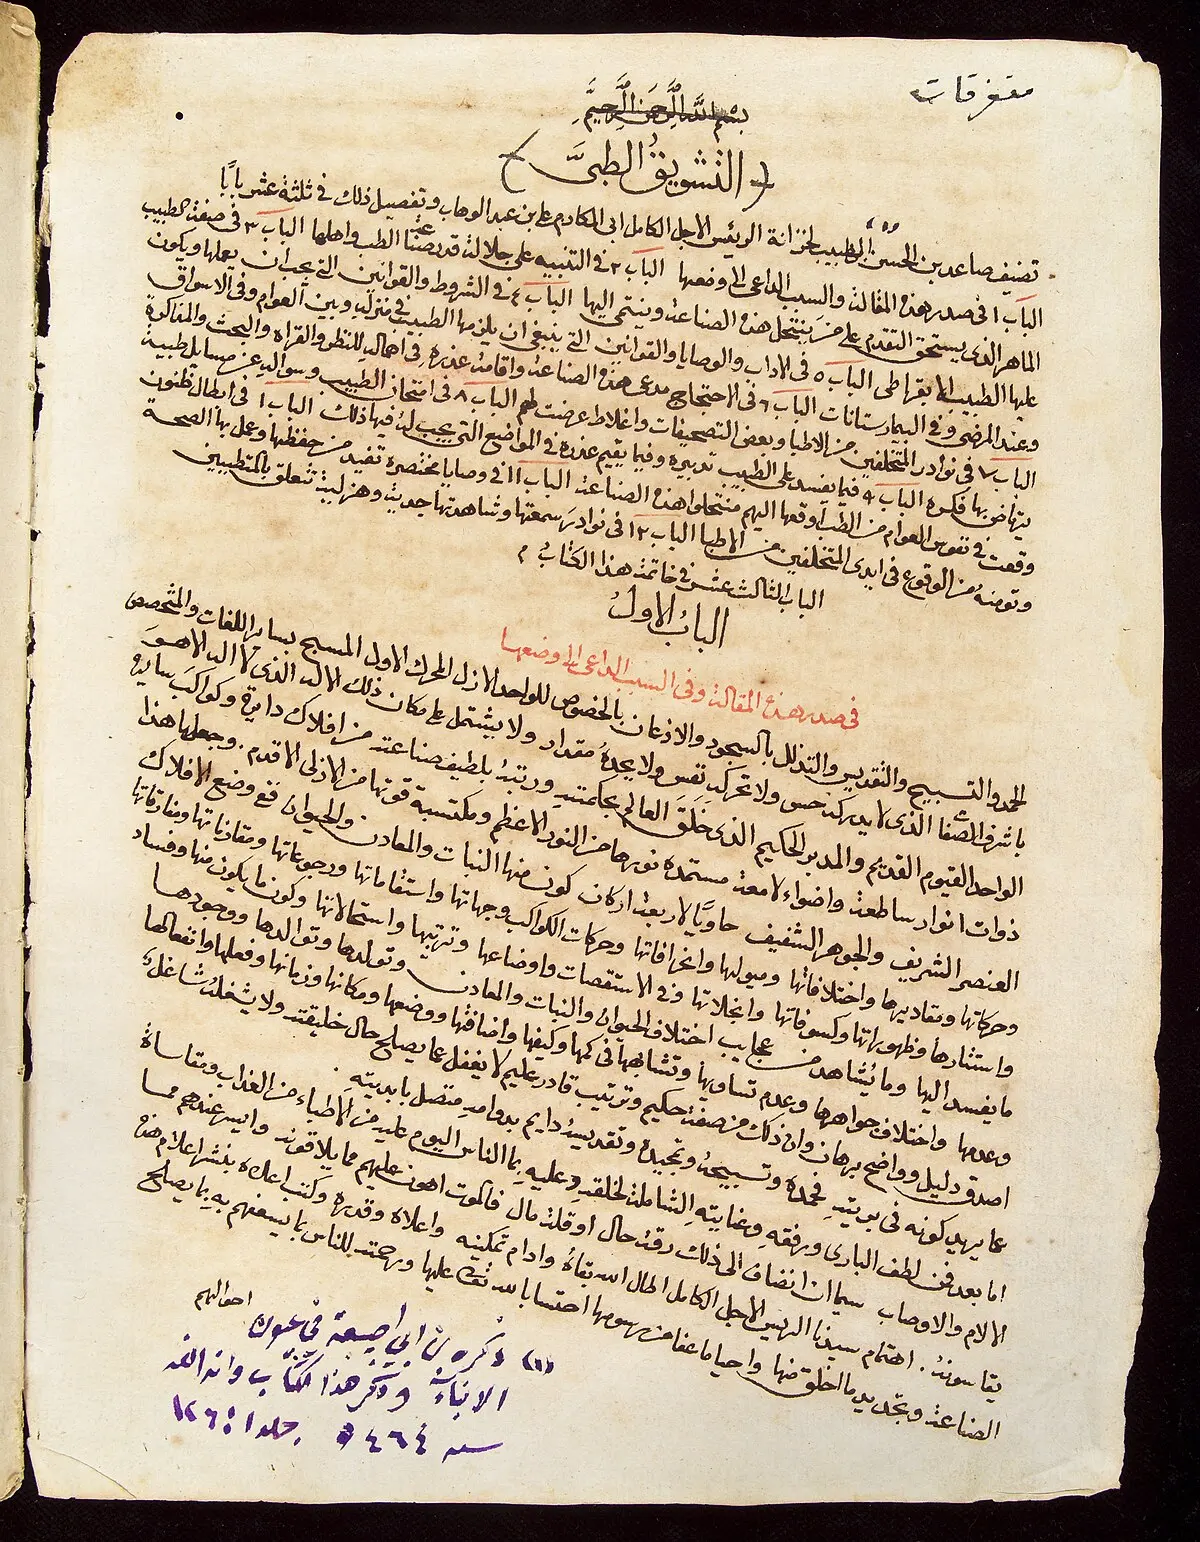 متفرقات
بسم الله الرحمن الرحيم
التشويق الطبي
تصنيف صاعد بن الحسن الطبيب لخزانة الرئيس الاجل الكامل ابي المكارم علي بن عبد الوهاب وتفصيل ذلك في ثلثة عشر بابًا
الباب ١ في صدر هذه المقالة والسبب الداعي الى وضعها الباب ٢ في التنبيه على جلالة قدر صناعة الطب واهلها الباب ٣ في صفة الطبيب
الماهر الذي يستحق التقدم على من ينتحل هذه الصناعة وينتمى اليها الباب ٤ في الشروط والقوانين التي يجب ان يعملها ويكون
عليها الطبيب البقراطى الباب ٥ في الاداب والوصايا والقوانين التي ينبغي ان يلزمها الطبيب في منزله وبين العوام وفي الاسواق
وعند المرضى وفي البيمارستانات الباب ٦ في الاحتجاج مدعى هذه الصناعة واقامة عذره في اهماله للنظر والقراة والبحث والمذاكرة
الباب ٧ في نوادر المتخلفين من الاطبا وبعض التصحيفات واغلاط عرضت لهم الباب ٨ في امتحان الطبيب وسواله عن مسايل طبية
يتهاض بها فكره الباب ٩ فيما يفسد على الطبيب تدبيره وفيما يقيم عذره في المواضع التي يجب له فيها ذلك الباب ١٠ في ابطال ظنون
وقعت في نفوس العوام من الطب اوقعها اليهم منتحلوا هذه الصناعة الباب ١١ في وصايا مختصرة تفيد من حفظها وعمل بها الصحة
وتومنه من الوقوع في ايدى المتخلفين من الاطبا الباب ١٢ في نوادر سمعتها وشاهدتها جدية وهزلية تتعلق بالمتطببين
الباب الثالث عشر في خاتمة هذا الكتاب
الباب الاول
في صدر هذه المقالة وفي السبب الداعي الى وضعها
الحمد والتسبيح والتقديس والتذلل بالسجود والاذعان بالخضوع للواحد الازل المحرك الاول المسبح بساير اللغات والمتخصص
باشرف الصفات الذي لا يدركه حس ولا تحركه نفس ولا يحده مقدار ولا يشتمل عليه مكان ذلك الاله الذي لا اله الا هو
الواحد القيوم القديم والمدبر الحكيم الذي خلق العالم بحكمته ورتبه بلطيف صناعته من افلاك دايرة وكواكب سايره
ذوات انوار ساطعة واضواء لامعة مستمدة نورها من النور الاعظم ومكتسبة قوتها من الازلي الاقدم وجعلها هذا
العنصر الشريف والجوهر الشفيف حاويًا لاربعة اركان كون منها النبات والمعادن والحيوان فمع وضع الافلاك
وحركاتها ومقاديرها واختلافاتها وميولها وانحرافاتها وحركات الكواكب وجهاتها واستقاماتها ورجوعاتها ومقارناتها ومفارقاتها
واستتارها وظهوراتها وكسوفاتها وانجلاتها وفي الاستقصات واوضاعها وترتيبها واستحالاتها وكون ما يكون منها وفساد
ما يفسد اليها وما يُشاهد من عجايب اختلاف الحيوان والنبات والمعادن وتولدها وتوالدها ووجودها
وعدمها واختلاف جواهرها وعدم تساويها وتشابهها في كمها وكيفها واضافتها ووضعها ومكانها وزمانها وفعلها وانفعالها
اصدق دليل وواضح برهان وان ذلك من صنعة حكيم وترتيب قادر عليم لا يغفل عما يصلح حال خليقته ولا يشغله شاغل
عما يريد كونه في بريته فحمده وتسبيحه وتمجيده وتقديسه دايم بدوامه متصل بابديته
اما بعد فمن لطف الباري ورفقه وعنايته الشاملة لخلقه وعليه بما الناس اليوم عليه من الاطباء من العذاب ومقاساة
الالام والاوصاب سيما ان انضاف الى ذلك رقة حال او قلة مال فالموت اهون عليهم مما يلاقونه وايسر عندهم مما
يقاسونه. اهتمام سيدنا الرييس الاجل الكامل اطال الله بقاه وادام تمكينه واعلاه وقدره وكبت اعداه بنشر اعلام هذه
الصناعة وتجديد ما اخلق منها واحيا ما عفا من رسومها احتسابا لله تعالى عليها ورحمة للناس بما يسعفهم به بما يصلح
احوالهم
(١) ذكره ابن ابي اصيبعة في عيون
الانباء وذكر هذا الكتاب وانه الفه
سنه ٤٦٤ ه جلد ١: